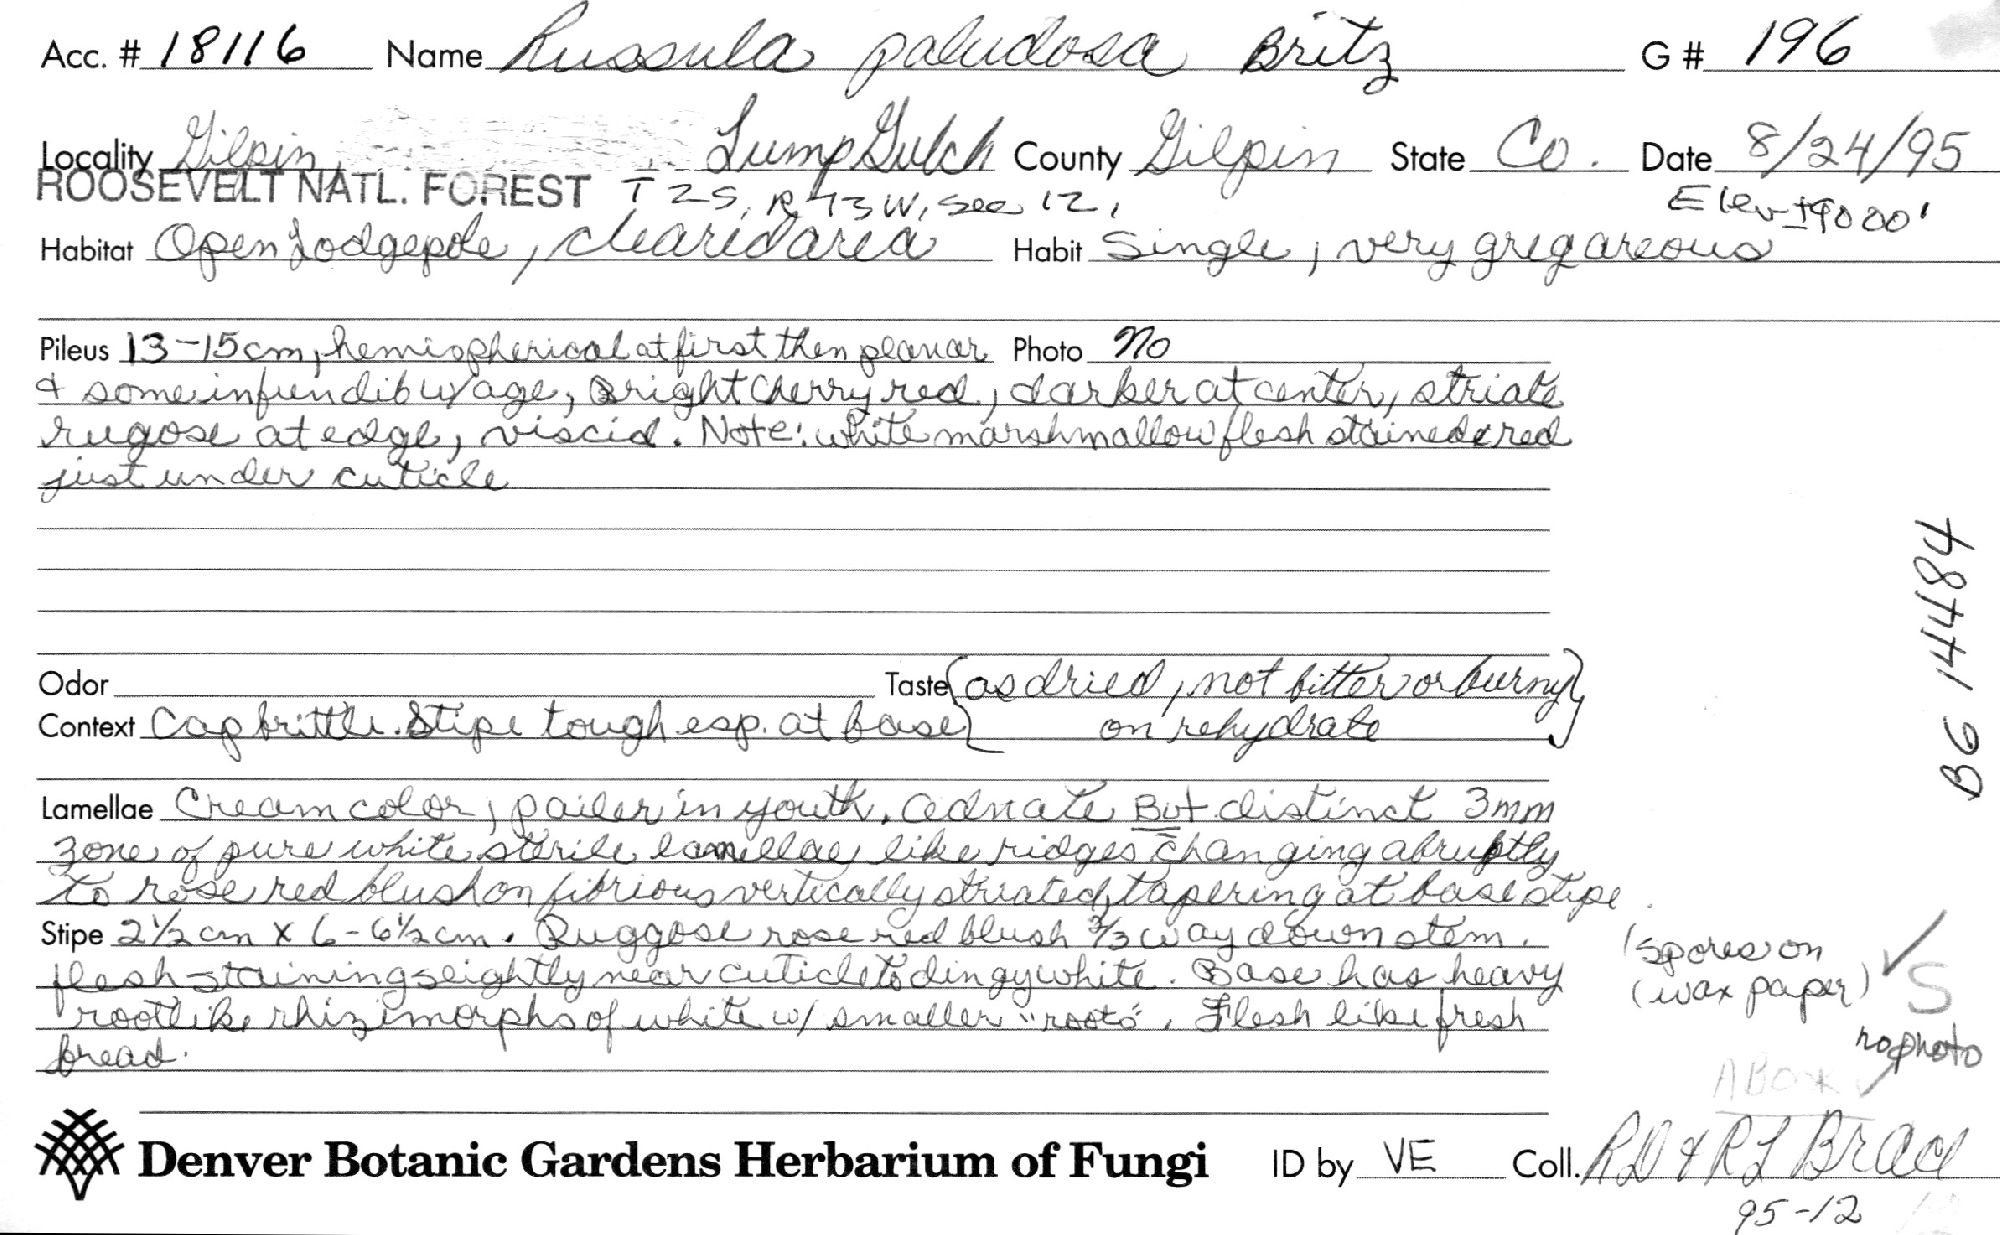 Acc. # 18116 Name Russula paludosa Britz G # 196
Locality Gilpin, Lump Gulch County Gilpin State Co. Date 8/24/95
ROOSEVELT NATL. FOREST T 2S, R 73W, Sec 12, Elev ±9000'
Habitat Open Lodgepole, cleared area Habit Single, very gregareous
Pileus 13-15cm, hemispherical at first then planar Photo no
& some infundib w/ age, Bright Cherry red, darker at center, striate
rugose at edge, viscid. Note: white marshmallow flesh stained red
just under cuticle
Odor Taste (as dried, not bitter or burny
Context Cap brittle. Stipe tough esp. at base on rehydrate)
Lamellae Cream color, pailer in youth. Adnate But distinct 3mm
zone of pure white sterile lamellae like ridges changing abruptly
to rose red blush on fibrious vertically striated, tapering at base stipe
Stipe 2½cm x 6-6½cm. Ruggose rose red blush ⅔ way down stem.
flesh staining slightly near cuticle to dingy white. Base has heavy
rootlike rhizimorphs of white w/ smaller "roots". Flesh like fresh
bread.
(spores on
(wax paper) ✓ S
no photo
B6 14484
Denver Botanic Gardens Herbarium of Fungi ID by VE Coll. RD & RL Brace
95-12